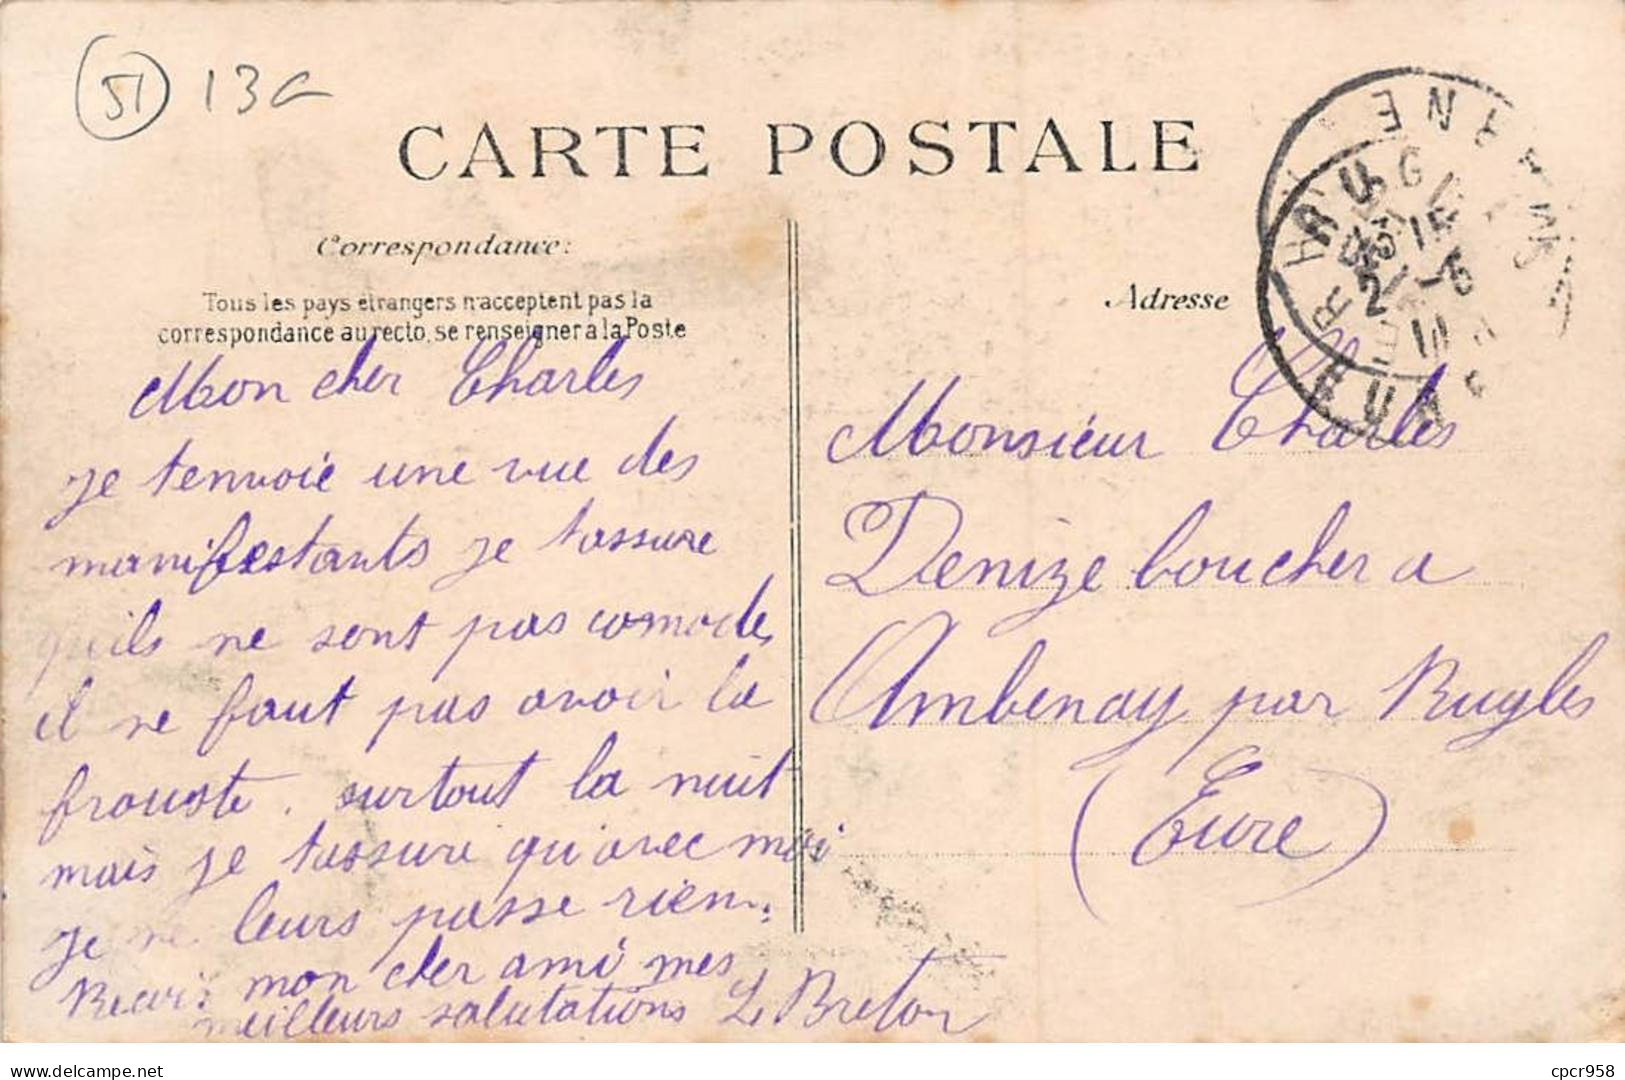 51 13c
CARTE POSTALE
Correspondance:
Tous les pays étrangers n'acceptent pas la
correspondance au recto, se renseigner a la Poste
Mon cher Charles
je tenvoie une vue des
manifestants je tassure
quils ne sont pas comodes
il ne faut pas avoir la
frouste. surtout la nuit
mais je tassure qu'avec moi
je ne leurs passe rien.
mon cher ami mes
meilleurs salutations Le Breton
Adresse
Monsieur Charles
Denize boucher a
Ambenay par Rugles
(Eure)
RUGLES
EURE
MARNE
cpcr958